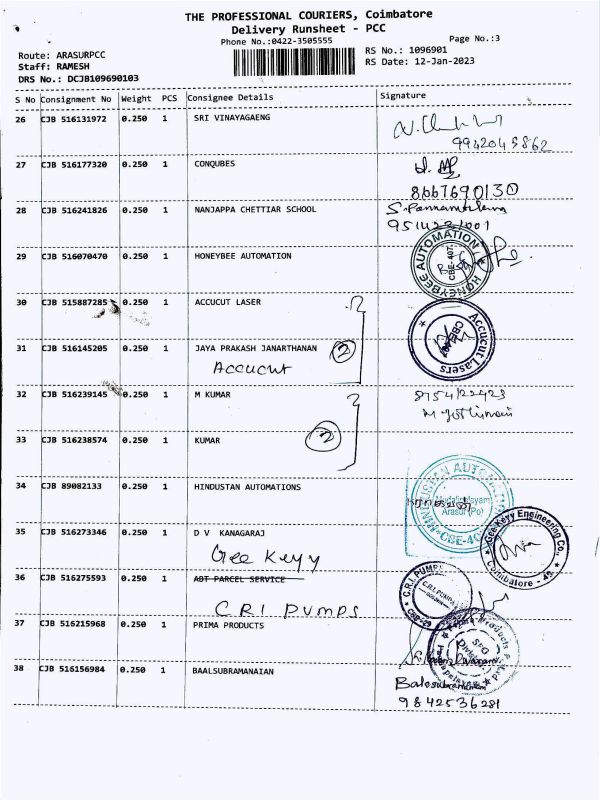 THE PROFESSIONAL COURIERS, Coimbatore
Delivery Runsheet - PCC
Phone No.:0422-3505555
Page No.:3
Route: ARASURPCC
Staff: RAMESH
DRS No.: DCJB109690103
RS No.: 1096901
RS Date: 12-Jan-2023
S No Consignment No Weight PCS Consignee Details Signature
26 CJB 516131972 0.250 1 SRI VINAYAGAENG
9942045862
27 CJB 516177320 0.250 1 CONQUBES
8667690130
28 CJB 516241826 0.250 1 NANJAPPA CHETTIAR SCHOOL
29 CJB 516070470 0.250 1 HONEYBEE AUTOMATION
HONEYBEE AUTOMATION
CBE-407
30 CJB 515887285 0.250 1 ACCUCUT LASER
31 CJB 516145205 0.250 1 JAYA PRAKASH JANARTHANAN
Accucut
2
Accucut Lasers
CBE
32 CJB 516239145 0.250 1 M KUMAR
33 CJB 516238574 0.250 1 KUMAR
2
34 CJB 89082133 0.250 1 HINDUSTAN AUTOMATIONS
HINDUSTAN AUTOMATIONS
Arasur (Po)
CBE-40
35 CJB 516273346 0.250 1 D V KANAGARAJ
Gee Keyy
Gee Kery Engineering Co.,
Coimbatore
36 CJB 516275593 0.250 1 ABT PARCEL SERVICE
C.R.I PUMPS
C.R.I. PUMPS
37 CJB 516215968 0.250 1 PRIMA PRODUCTS
38 CJB 516156984 0.250 1 BAALSUBRAMANAIAN
Balasubramaniam
9842536281